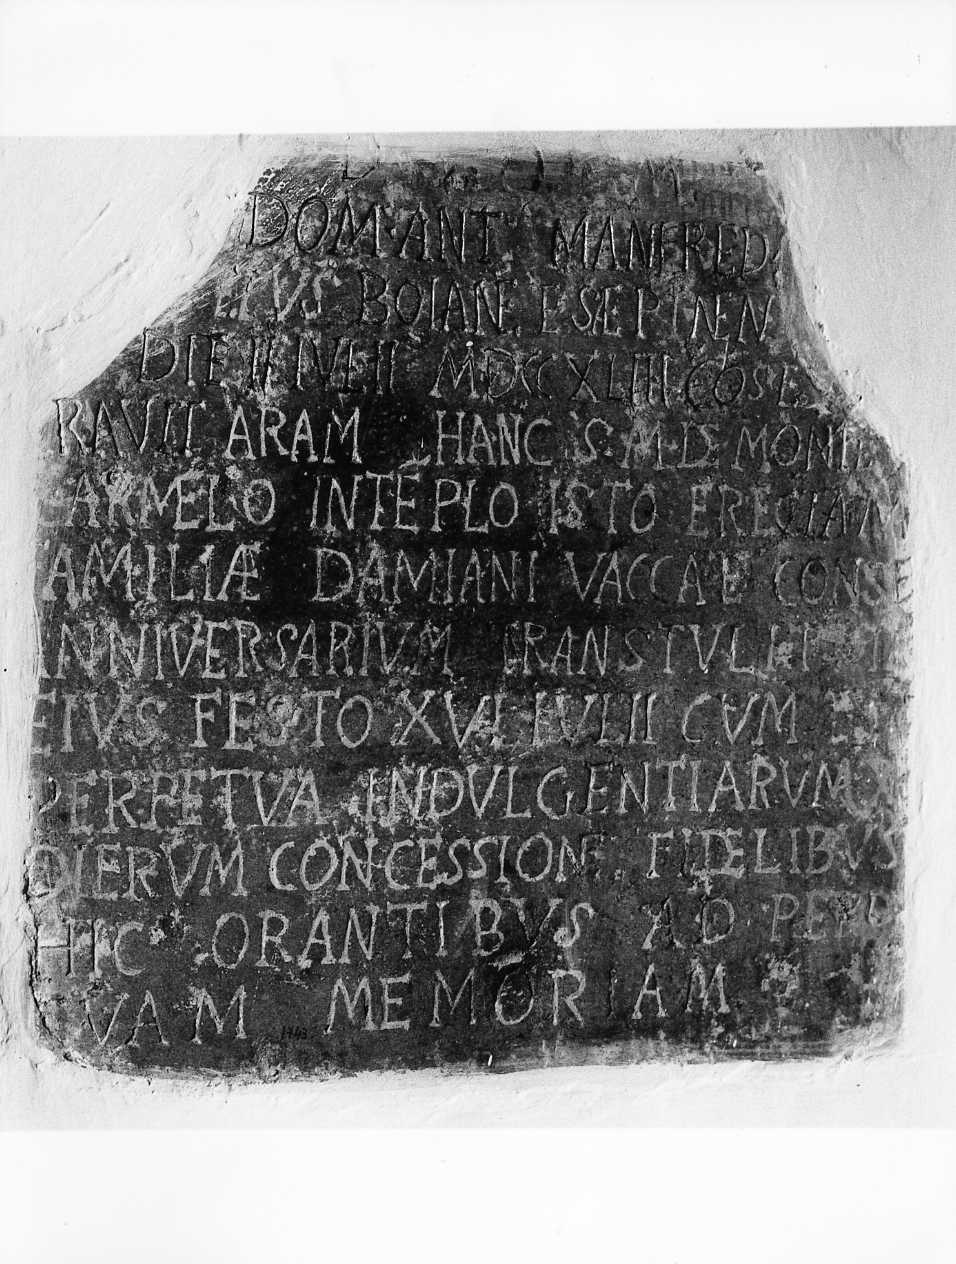 DOM. ANT. MANFRED
IUS BOIANE ESEPIN EN
DIE II IVLII MDCCXLIII COSE
RAVIT ARAM HANC S. M. DE MONTE
CARMELO IN TEPLO ISTO ERECTAM
AMILIÆ DAMIANI VACCA E CONSE
ANNIVERSARIVM TRANSTVLIT
EIVS FESTO XVI IVLII CVM
PERPETVA INDVLGENTIARVM
DIERVM CONCESSIONE FIDELIBVS
HIC ORANTIBVS AD PERP
VAM MEMORIAM
1743